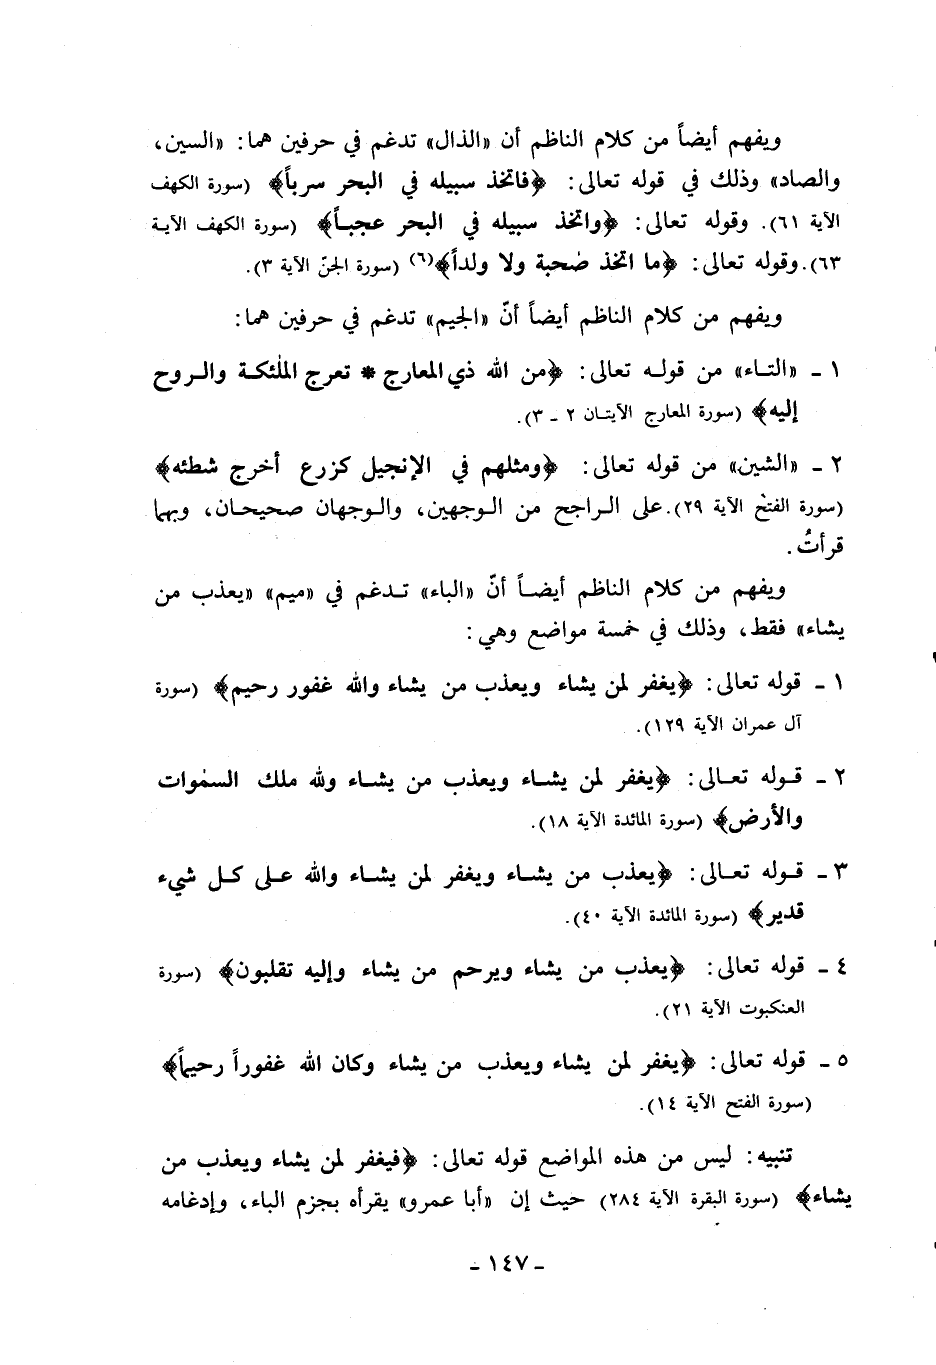 ويفهم أيضاً من كلام الناظم أن «الذال» تدغم في حرفين هما: «السين،
والصاد» وذلك في قوله تعالى: ﴿فاتخذ سبيله في البحر سرباً﴾ (سورة الكهف
الآية ٦١). وقوله تعالى: ﴿واتخذ سبيله في البحر عجبـاً﴾ (سورة الكهف الآيـة
٦٣). وقوله تعالى: ﴿ما اتخذ صٰحبة ولا ولداً﴾(٦) (سورة الجنّ الآية ٣).
ويفهم من كلام الناظم أيضاً أنّ «الجيم» تدغم في حرفين هما:
١ ـ «التـاء» من قولـه تعالى: ﴿من الله ذي المعارج * تعرج الملٰئكـة والـروح
إليه﴾ (سورة المعارج الآيتـان ٢ ـ ٣).
٢ ـ «الشين» من قوله تعالى: ﴿ومثلهم في الإنجيل كزرع أخرج شطئه﴾
(سورة الفتح الآية ٢٩). على الـراجح من الـوجهين، والـوجهان صحيحـان، وبهما
قرأتُ.
ويفهم من كلام الناظم أيضـاً أنّ «الباء» تـدغم في «ميم» «يعذب من
يشاء» فقط، وذلك في خمسة مواضع وهي:
١ ـ قوله تعالى: ﴿يغفر لمن يشاء ويعذب من يشاء والله غفور رحيم﴾ (سورة
آل عمران الآية ١٢٩).
٢ ـ قـوله تعـالى: ﴿يغفر لمن يشـاء ويعذب من يشـاء ولله ملك السمٰوات
والأرض﴾ (سورة المائدة الآية ١٨).
٣ ـ قـوله تعـالى: ﴿يعذب من يشـاء ويغفر لمن يشـاء والله عـلى كـل شيء
قدير﴾ (سورة المائدة الآية ٤٠).
٤ ـ قوله تعالى: ﴿يعذب من يشاء ويرحم من يشاء وإليه تقلبون﴾ (سورة
العنكبوت الآية ٢١).
٥ ـ قوله تعالى: ﴿يغفر لمن يشاء ويعذب من يشاء وكان الله غفوراً رحيماً﴾
(سورة الفتح الآية ١٤).
تنبيه: ليس من هذه المواضع قوله تعالى: ﴿فيغفر لمن يشاء ويعذب من
يشاء﴾ (سورة البقرة الآية ٢٨٤) حيث إن «أبا عمرو» يقرأه بجزم الباء، وإدغامه
ـ ١٤٧ ـ